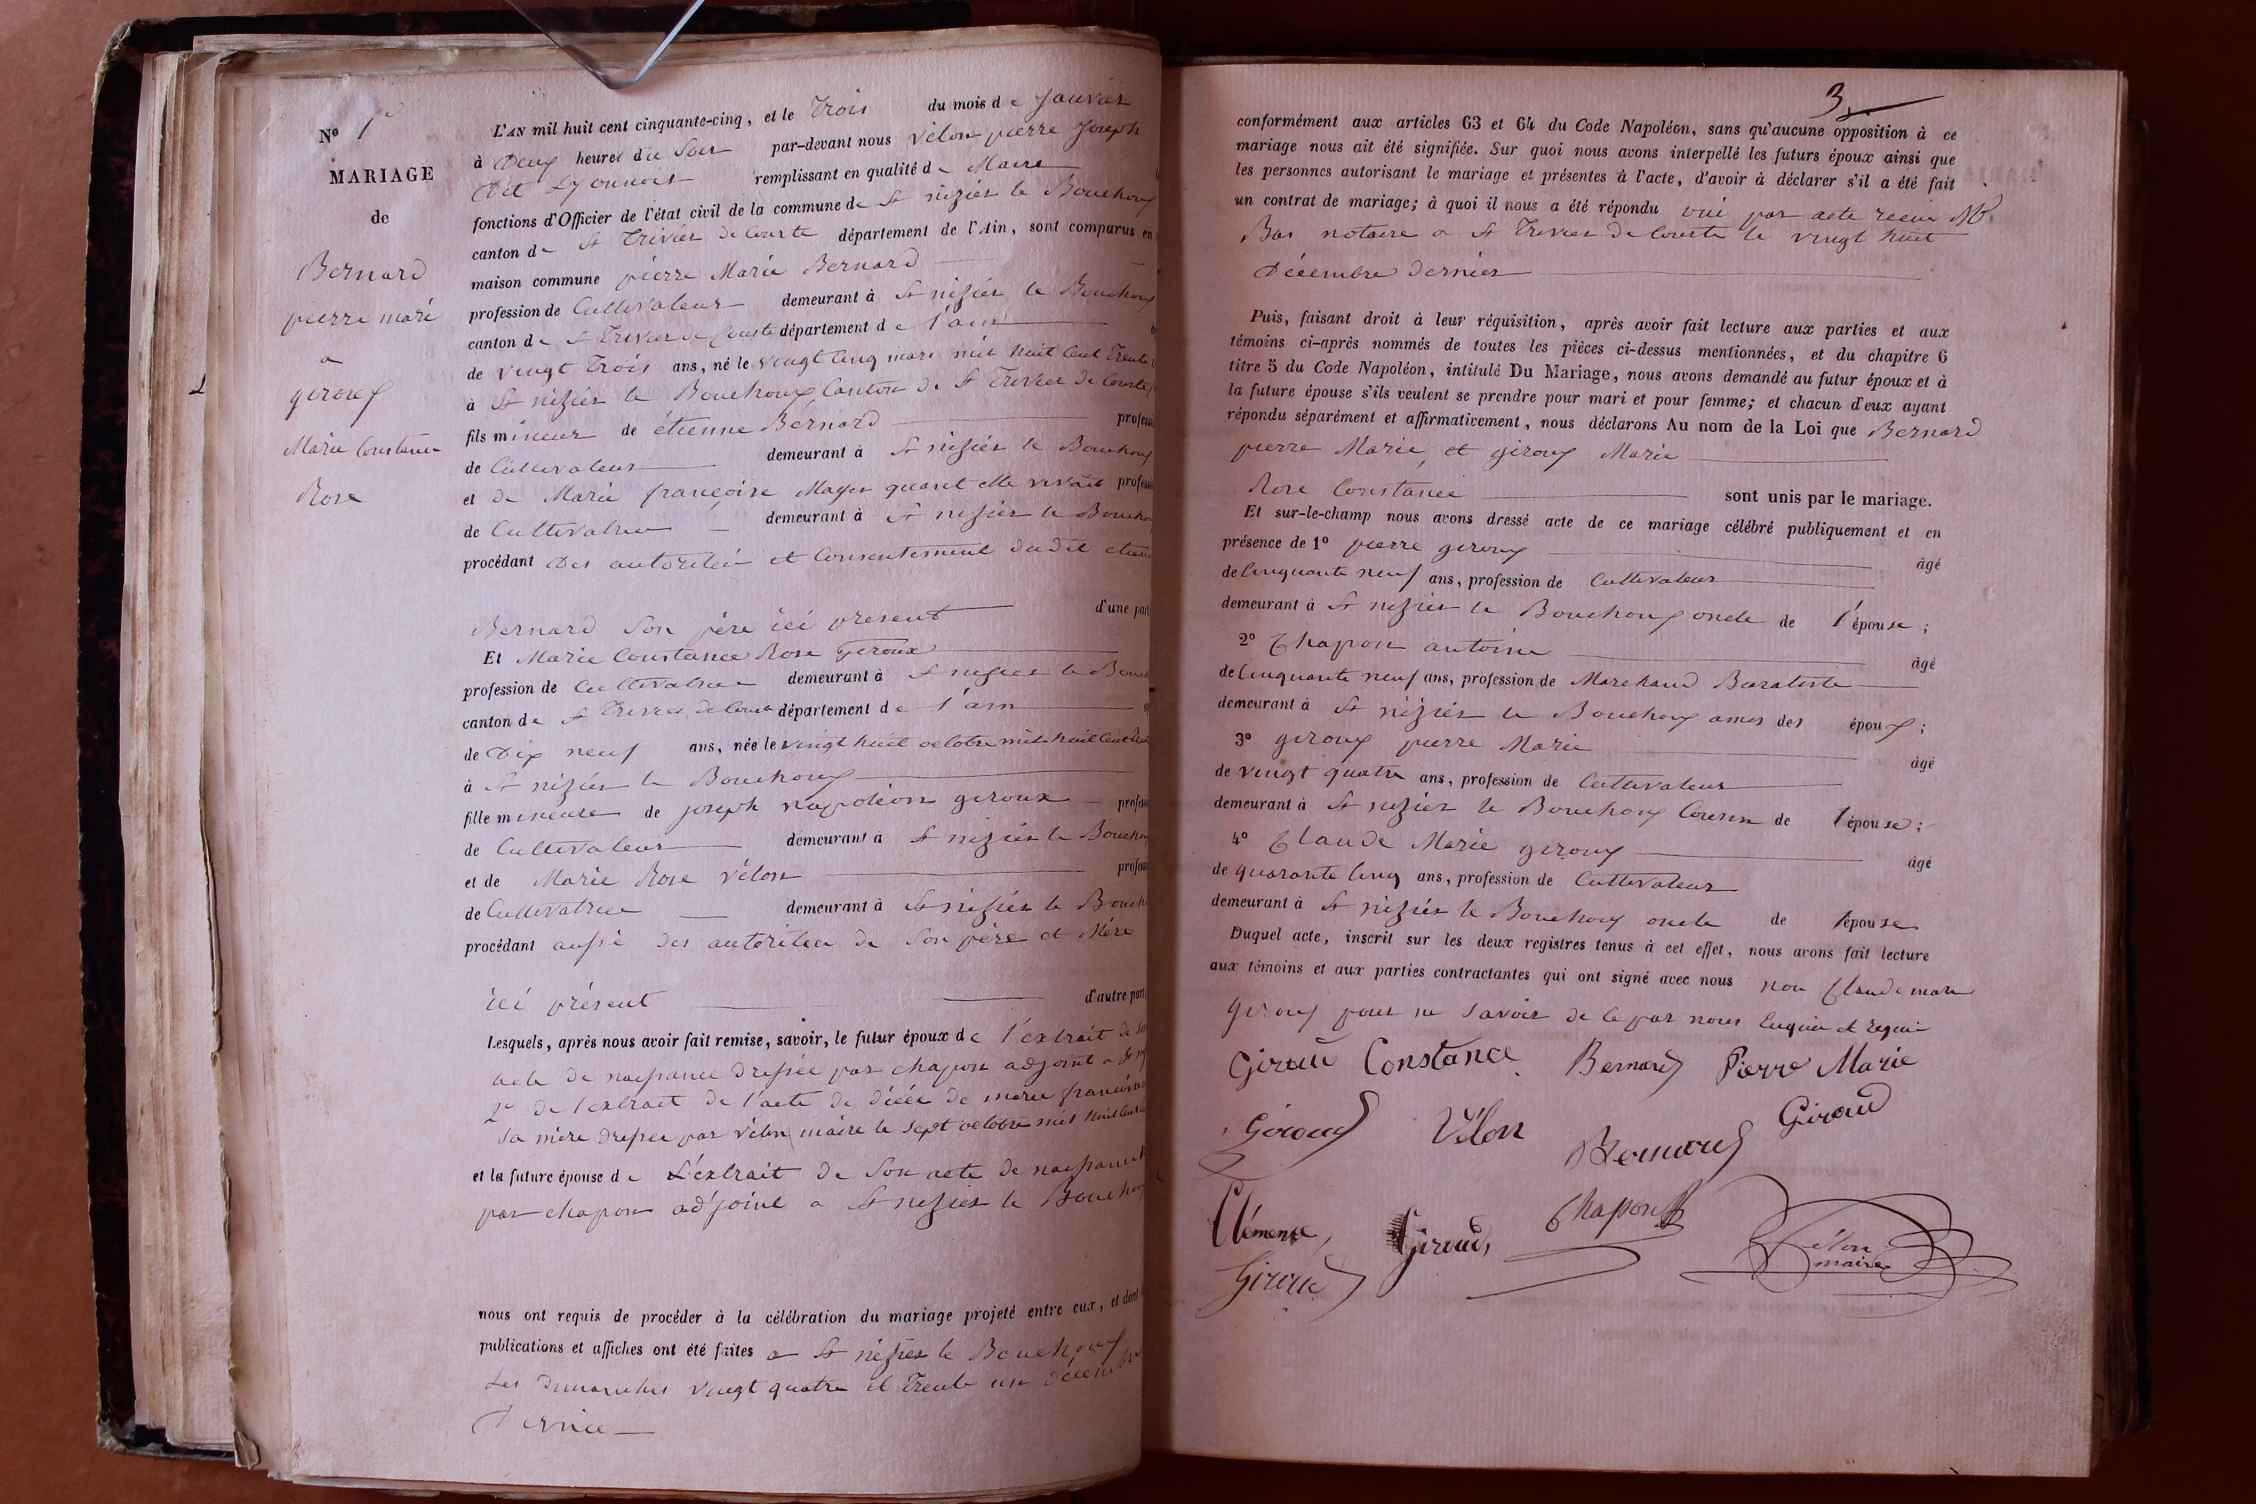 Nº 1er
MARIAGE
de
Bernard
pierre marie
a
giroux
Marie Constance
Rose
L'AN mil huit cent cinquante-cinq, et le Trois du mois de Janvier
à Deux heures du Soir par-devant nous Vélon pierre Joseph
Dit Lyonnois remplissant en qualité de Maire
fonctions d'Officier de l'état civil de la commune de St nizier le Bouchoux
canton de St Trivier de Courte département de l'Ain, sont comparus en
maison commune pierre Marie Bernard
profession de Cultivateur demeurant à St nizier le Bouchoux
canton de St Trivier de Courte département de l'ain
de vingt Trois ans, né le vingt cinq mars mil huit Cent Trente
à St nizier le Bouchoux Canton de St Trivier de Courte
fils mineur de étienne Bernard profess
de Cultivateur demeurant à St nizier le Bouchoux
et de Marie françoise Mayer quant elle vivait profess
de Cultivatrice demeurant à St nizier le Boucho
procédant Des autoritée et Consentement dudit etien
Bernard Son père ici présent d'une part
Et Marie Constance Rose Giroux
profession de Cultivatrice demeurant à St nizier le Bouch
canton de St Trivier de Courte département de l'ain
de Dix neuf ans, née le vingt huit octobre mil huit Cent
à St nizier le Bouchoux
fille mineure de joseph napoléon giroux profess
de Cultivateur demeurant à St nizier le Bouchou
et de Marie Rose vélon profess
de Cultivatrice demeurant à St nizier le Bouch
procédant aussi des autoritée de Son père et Mère
ici présent d'autre part
Lesquels, après nous avoir fait remise, savoir, le futur époux de l'extrait de son
acte de naissance dressée par chapon adjoint a St
2º de l'extrait de l'acte de décée de marie françoise
Sa mère dressée par vélon maire le Sept octobre mil huit Cent
et la future épouse de L'éxtrait de Son acte de naissance
par chapon adjoint a St nizier le Bouchoux
nous ont requis de procéder à la célébration du mariage projeté entre eux, et dont
publications et affiches ont été faites a St nizier le Bouchoux
Les dimanches vingt quatre et Trente un décembre
Dernier
3
conformément aux articles 63 et 64 du Code Napoléon, sans qu'aucune opposition à ce
mariage nous ait été signifiée. Sur quoi nous avons interpellé les futurs époux ainsi que
les personnes autorisant le mariage et présentes à l'acte, d'avoir à déclarer s'il a été fait
un contrat de mariage; à quoi il nous a été répondu oui par acte recue Me
Bas notaire a St Trivier de Courte le vingt huit
Décembre dernier
Puis, faisant droit à leur réquisition, après avoir fait lecture aux parties et aux
témoins ci-après nommés de toutes les pièces ci-dessus mentionnées, et du chapitre 6
titre 5 du Code Napoléon, intitulé Du Mariage, nous avons demandé au futur époux et à
la future épouse s'ils veulent se prendre pour mari et pour femme; et chacun d'eux ayant
répondu séparément et affirmativement, nous déclarons Au nom de la Loi que Bernard
pierre Marie, et giroux Marie
Rose Constance sont unis par le mariage.
Et sur-le-champ nous avons dressé acte de ce mariage célébré publiquement et en
présence de 1º pierre giroux âgé
de Cinquante neuf ans, profession de Cultivateur
demeurant à St nizier le Bouchoux oncle de l'épouse;
2º Chapon antoine âgé
de Cinquante neuf ans, profession de Marchand Buraliste
demeurant à St nizier le Bouchoux amis des époux;
3º giroux pierre Marie âgé
de vingt quatre ans, profession de Cultivateur
demeurant à St nizier le Bouchoux Cousin de l'épouse;
4º Claude Marie giroux âgé
de quarante Cinq ans, profession de Cultivateur
demeurant à St nizier le Bouchoux oncle de lépouse
Duquel acte, inscrit sur les deux registres tenus à cet effet, nous avons fait lecture
aux témoins et aux parties contractantes qui ont signé avec nous non Claude marie
giroux pour ne Savoir de Ce par nous Enquis et requis
Giroud Constance Bernard Pierre Marie
Giroud Vélon Bernard Giroud
Clémence Giroud, Chapon
Giroud Vélon
maire